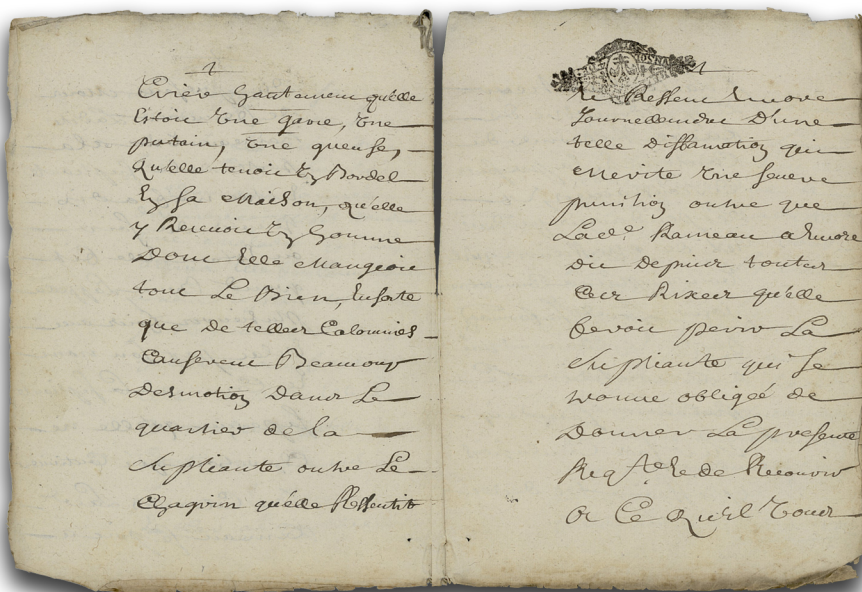 Crier hautement qu'elle
Estoit une garce, une
putain, une gueuse,
Qu'elle tenoit un Bordel
En sa Maison, qu'elle
y Recevoit un homme
Dont Elle Mangeoit
tout Le Bien, Ensorte
que de telles Calomnies
Causerent Beaucoup
Desmotion Dans Le
quartier de la
supliante outre Le
Chagrin qu'elle Ressentit
et Ressent Encore
Journellement D'une
telle Diffamation qui
Merite une severe
punition outre que
Lad.e Rameau a Encore
dit Depuis toutes
Ces Rixes qu'elle
feroit perir La
supliante qui se
trouve obligée de
Donner La presente
Reqte et de Recourir
A Ce Qu'il Vous